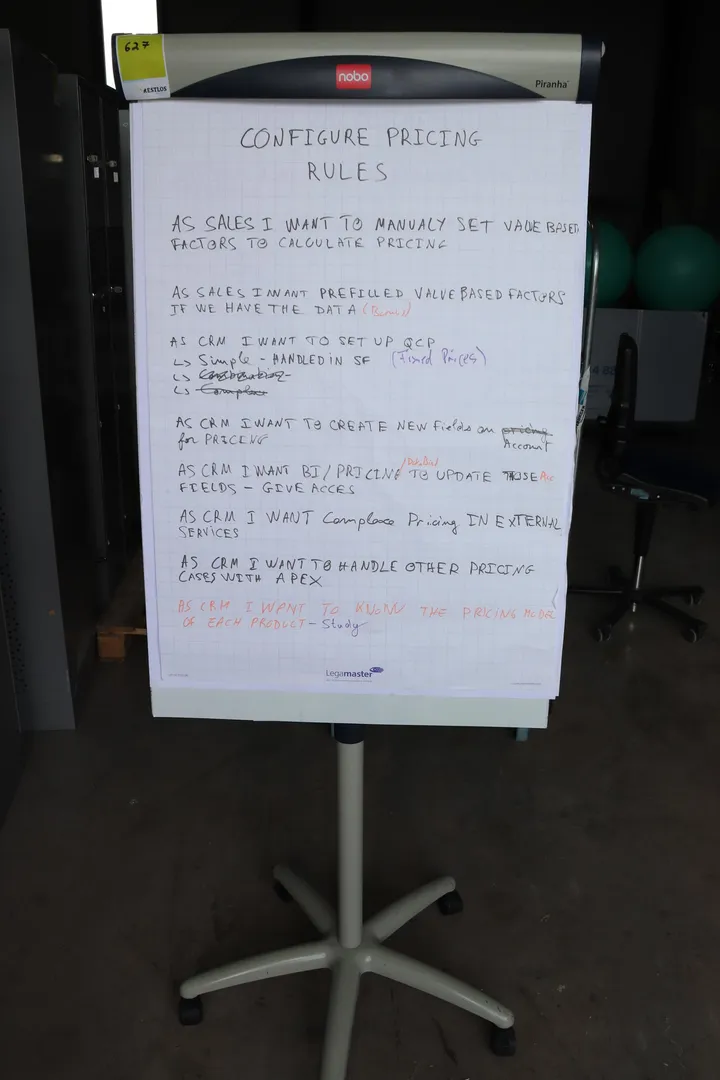 627
AESTLOS
nobo
Piranha
CONFIGURE PRICING
RULES
AS SALES I WANT TO MANUALY SET VALUE BASED
FACTORS TO CALCULATE PRICING
AS SALES I WANT PREFILLED VALUE BASED FACTORS
IF WE HAVE THE DATA
AS CRM I WANT TO SET UP QCP
↳ Simple - HANDLED IN SF (Fixed Prices)
↳
↳ Complex
AS CRM I WANT TO CREATE NEW Fields on pricing
for PRICING Account
AS CRM I WANT BI/PRICING TO UPDATE THOSE
FIELDS - GIVE ACCES
AS CRM I WANT Complexe Pricing IN EXTERNAL
SERVICES
AS CRM I WANT TO HANDLE OTHER PRICING
CASES WITH APEX
AS CRM I WANT TO KNOW THE PRICING MODEL
OF EACH PRODUCT - Study
Legamaster